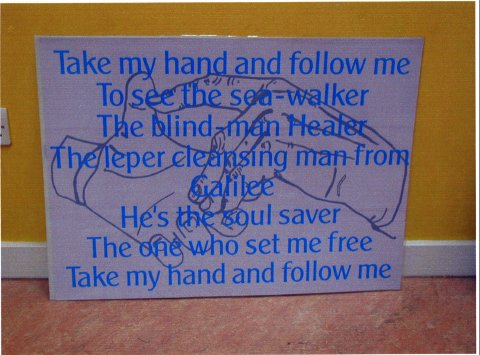 Take my hand and follow me
To see the sea-walker
The blind-man Healer
The leper cleansing man from
Galilee
He's the soul saver
The one who set me free
Take my hand and follow me